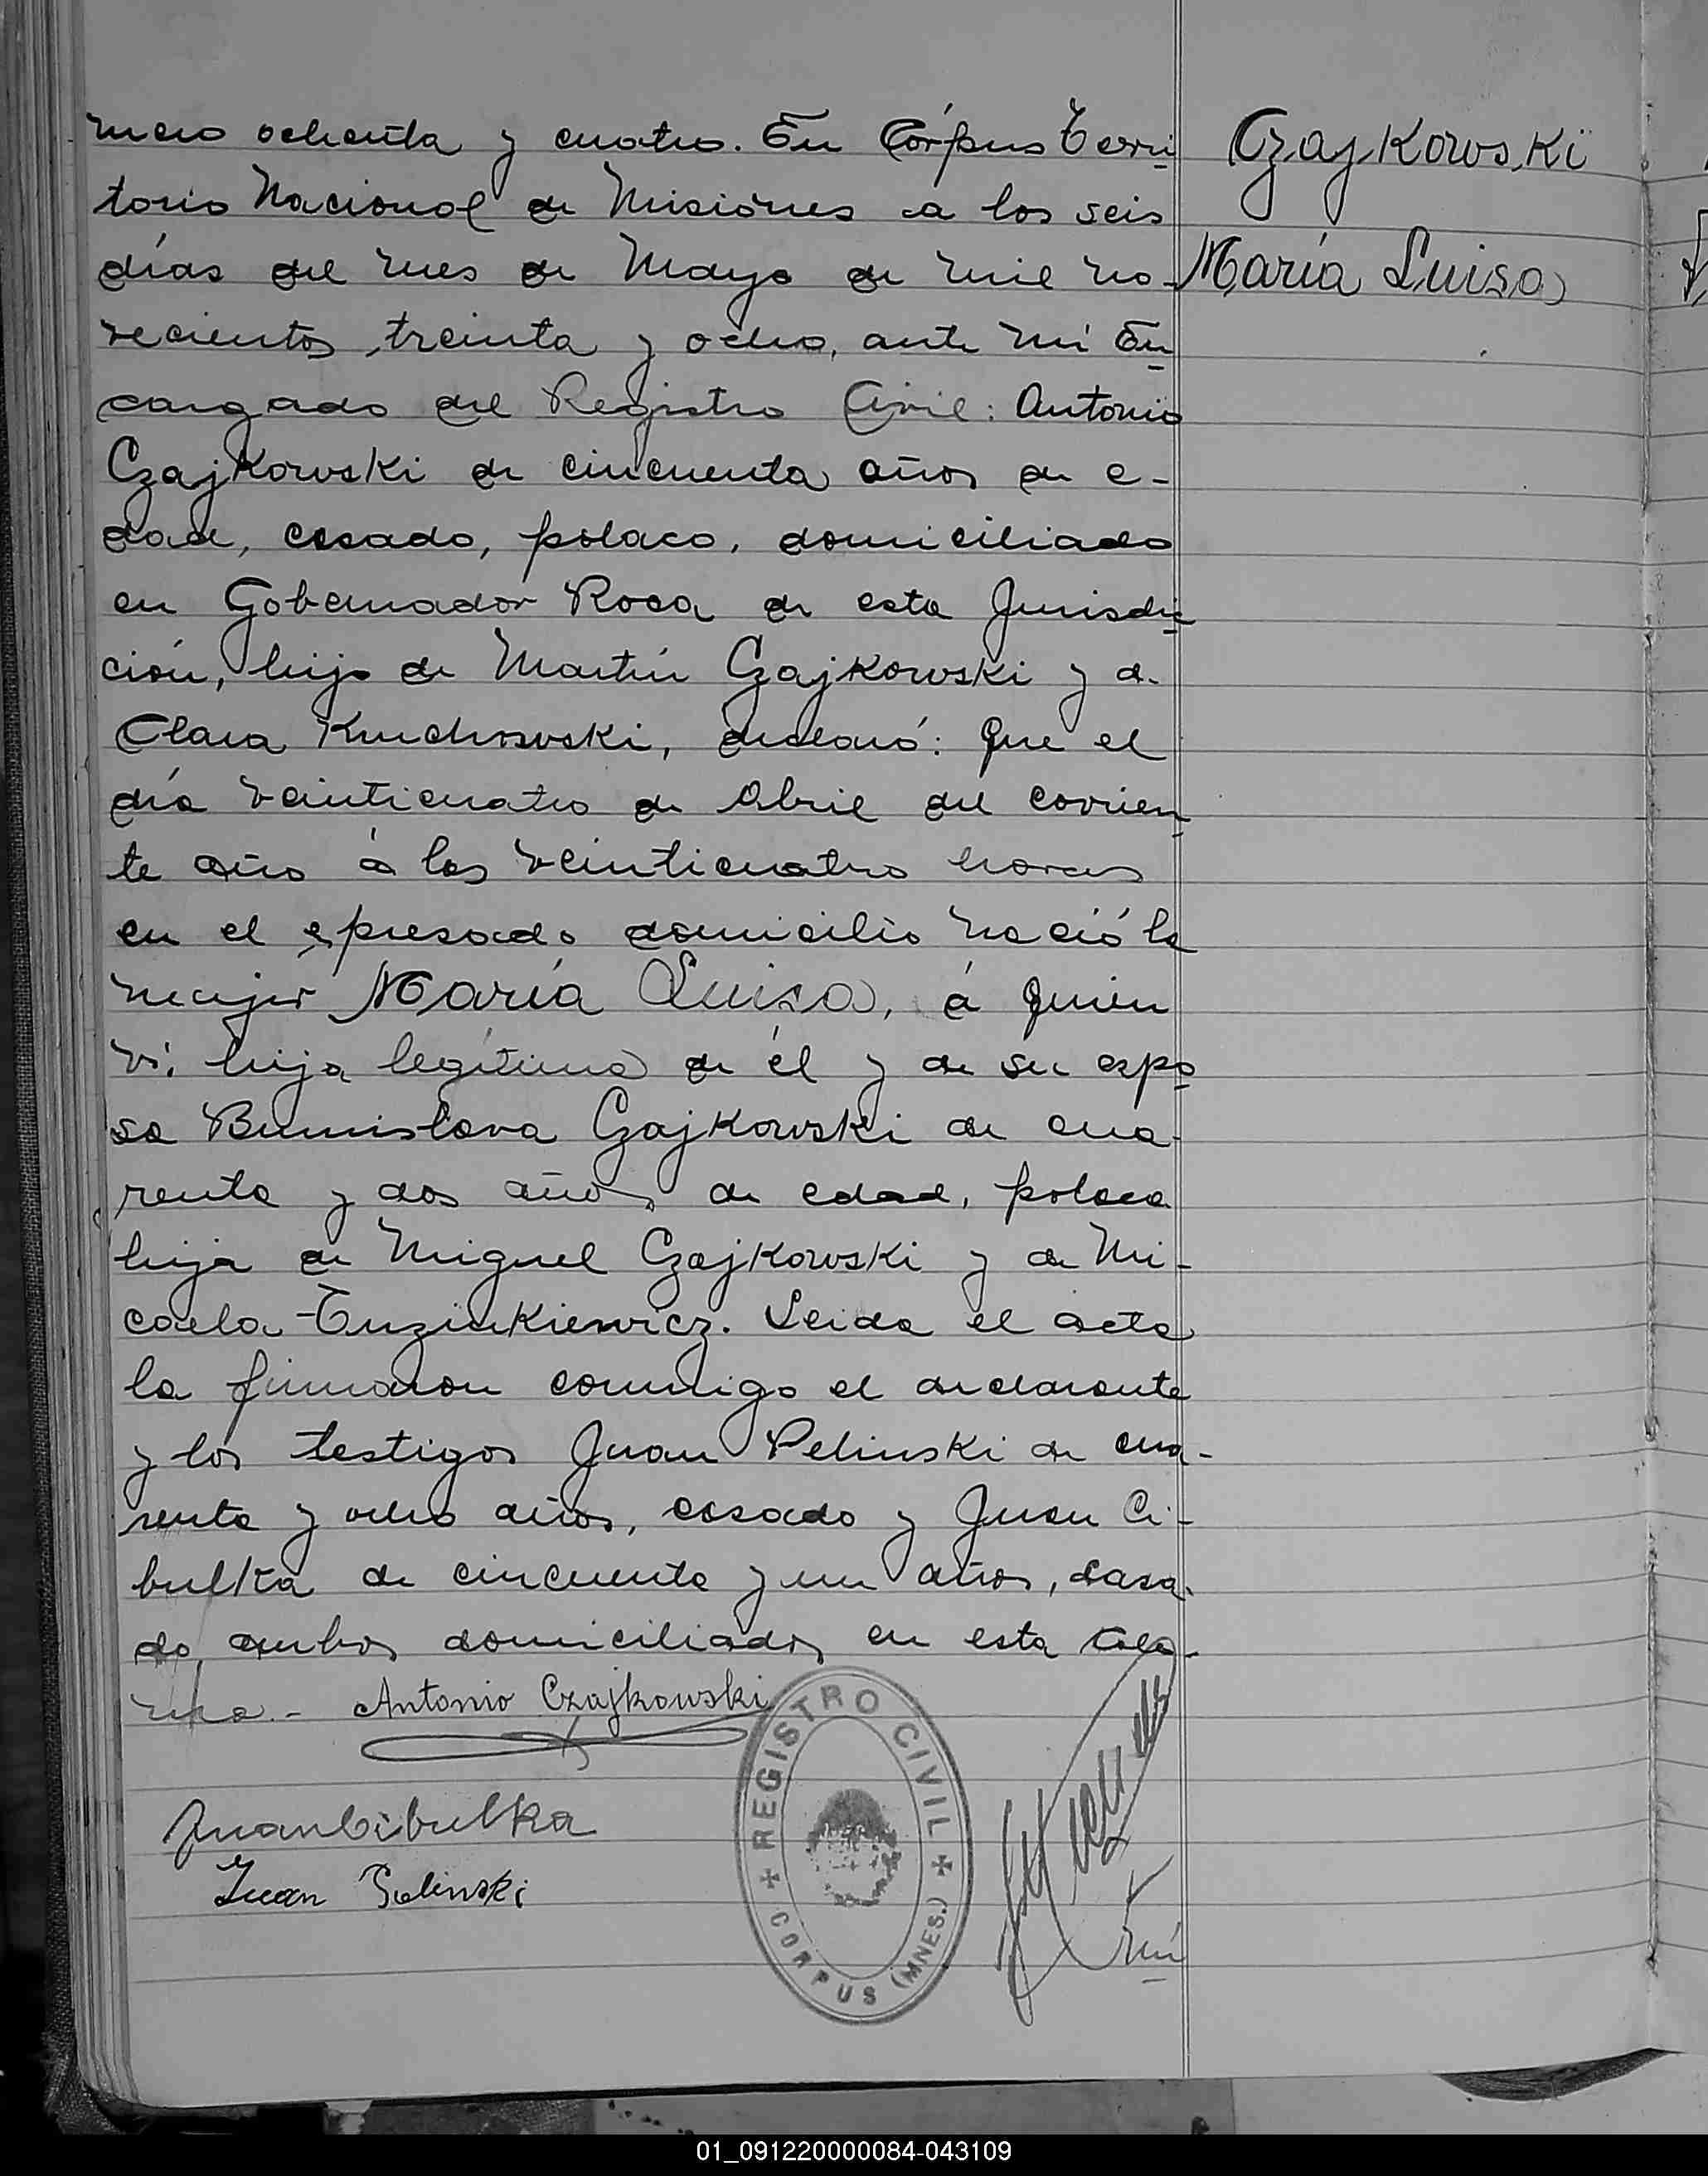 mero ochenta y cuatro. En Córpus Terri
Czajkowski
torio Nacional de Misiones a los seis
días del mes de Mayo de mil no-
María Luisa
vecientos treinta y ocho, ante mí En
cargado del Registro Civil: Antonio
Czajkowski de cincuenta años de e-
dad, casado, polaco, domiciliado
en Gobernador Roca de esta Jurisdic
ción, hijo de Martín Czajkowski y de
Clara declaró: que el
día veinticuatro de Abril del corrien
te año á las veinticuatro horas
en el epresado domicilio nació la
mujer María Luisa, á quien
ví, hija legítima de él y de su espo
sa Bunislava Czajkowski de cua-
renta y dos años de edad, polaca
hija de Miguel Czajkowski y de Mi-
caela Leida el acta
la firmaron conmigo el declarante
y los testigos Juan Pelinski de cua-
renta y ocho años, casado y Juan Ci-
bulka de cincuenta y un años, casa-
do, ambos domiciliados en esta Colo-
nia.- Antonio Czajkowski
Juan Cibulka
Juan Pelinski
REGISTRO CIVIL
CORPUS (MNES.)
01_091220000084-043109